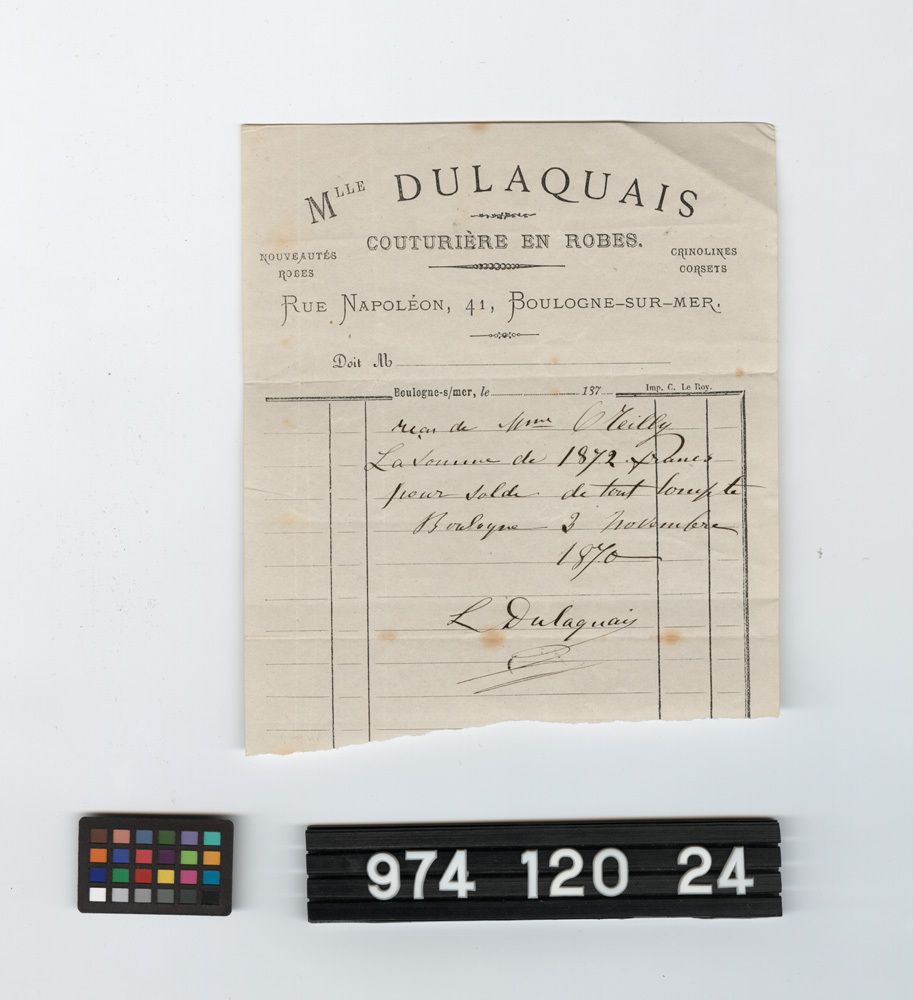 Mlle DULAQUAIS
COUTURIÈRE EN ROBES.
NOUVEAUTÉS
ROBES
CRINOLINES
CORSETS
RUE NAPOLÉON, 41, BOULOGNE-SUR-MER.
Doit M
Boulogne-s/mer, le 187
Imp. C. Le Roy.
reçu de Mme O'Reilly
La somme de 1872 francs
pour solde de tout compte
Boulogne 3 novembre
1870
L Dulaquais
974 120 24